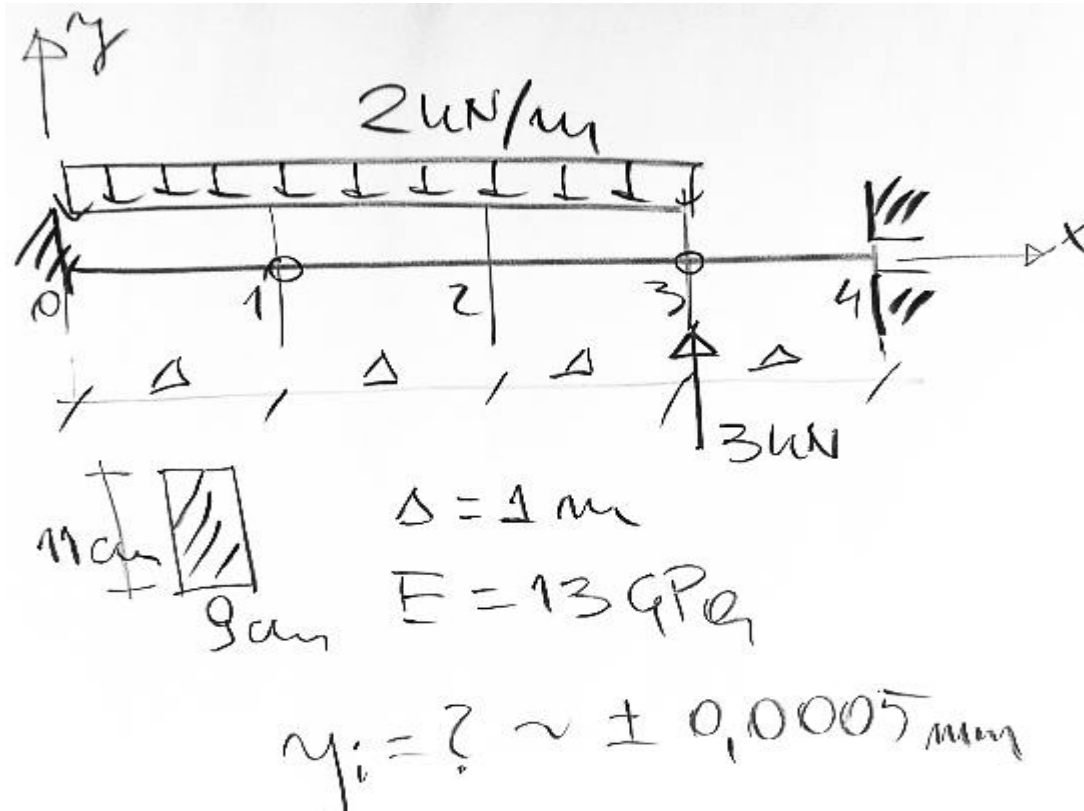 y
2 kN/m
x
0 1 2 3 4
Δ Δ Δ Δ
3 kN
11 cm
9 cm
Δ = 1 m
E = 13 GPa
yi = ? ~ ± 0,0005 mm